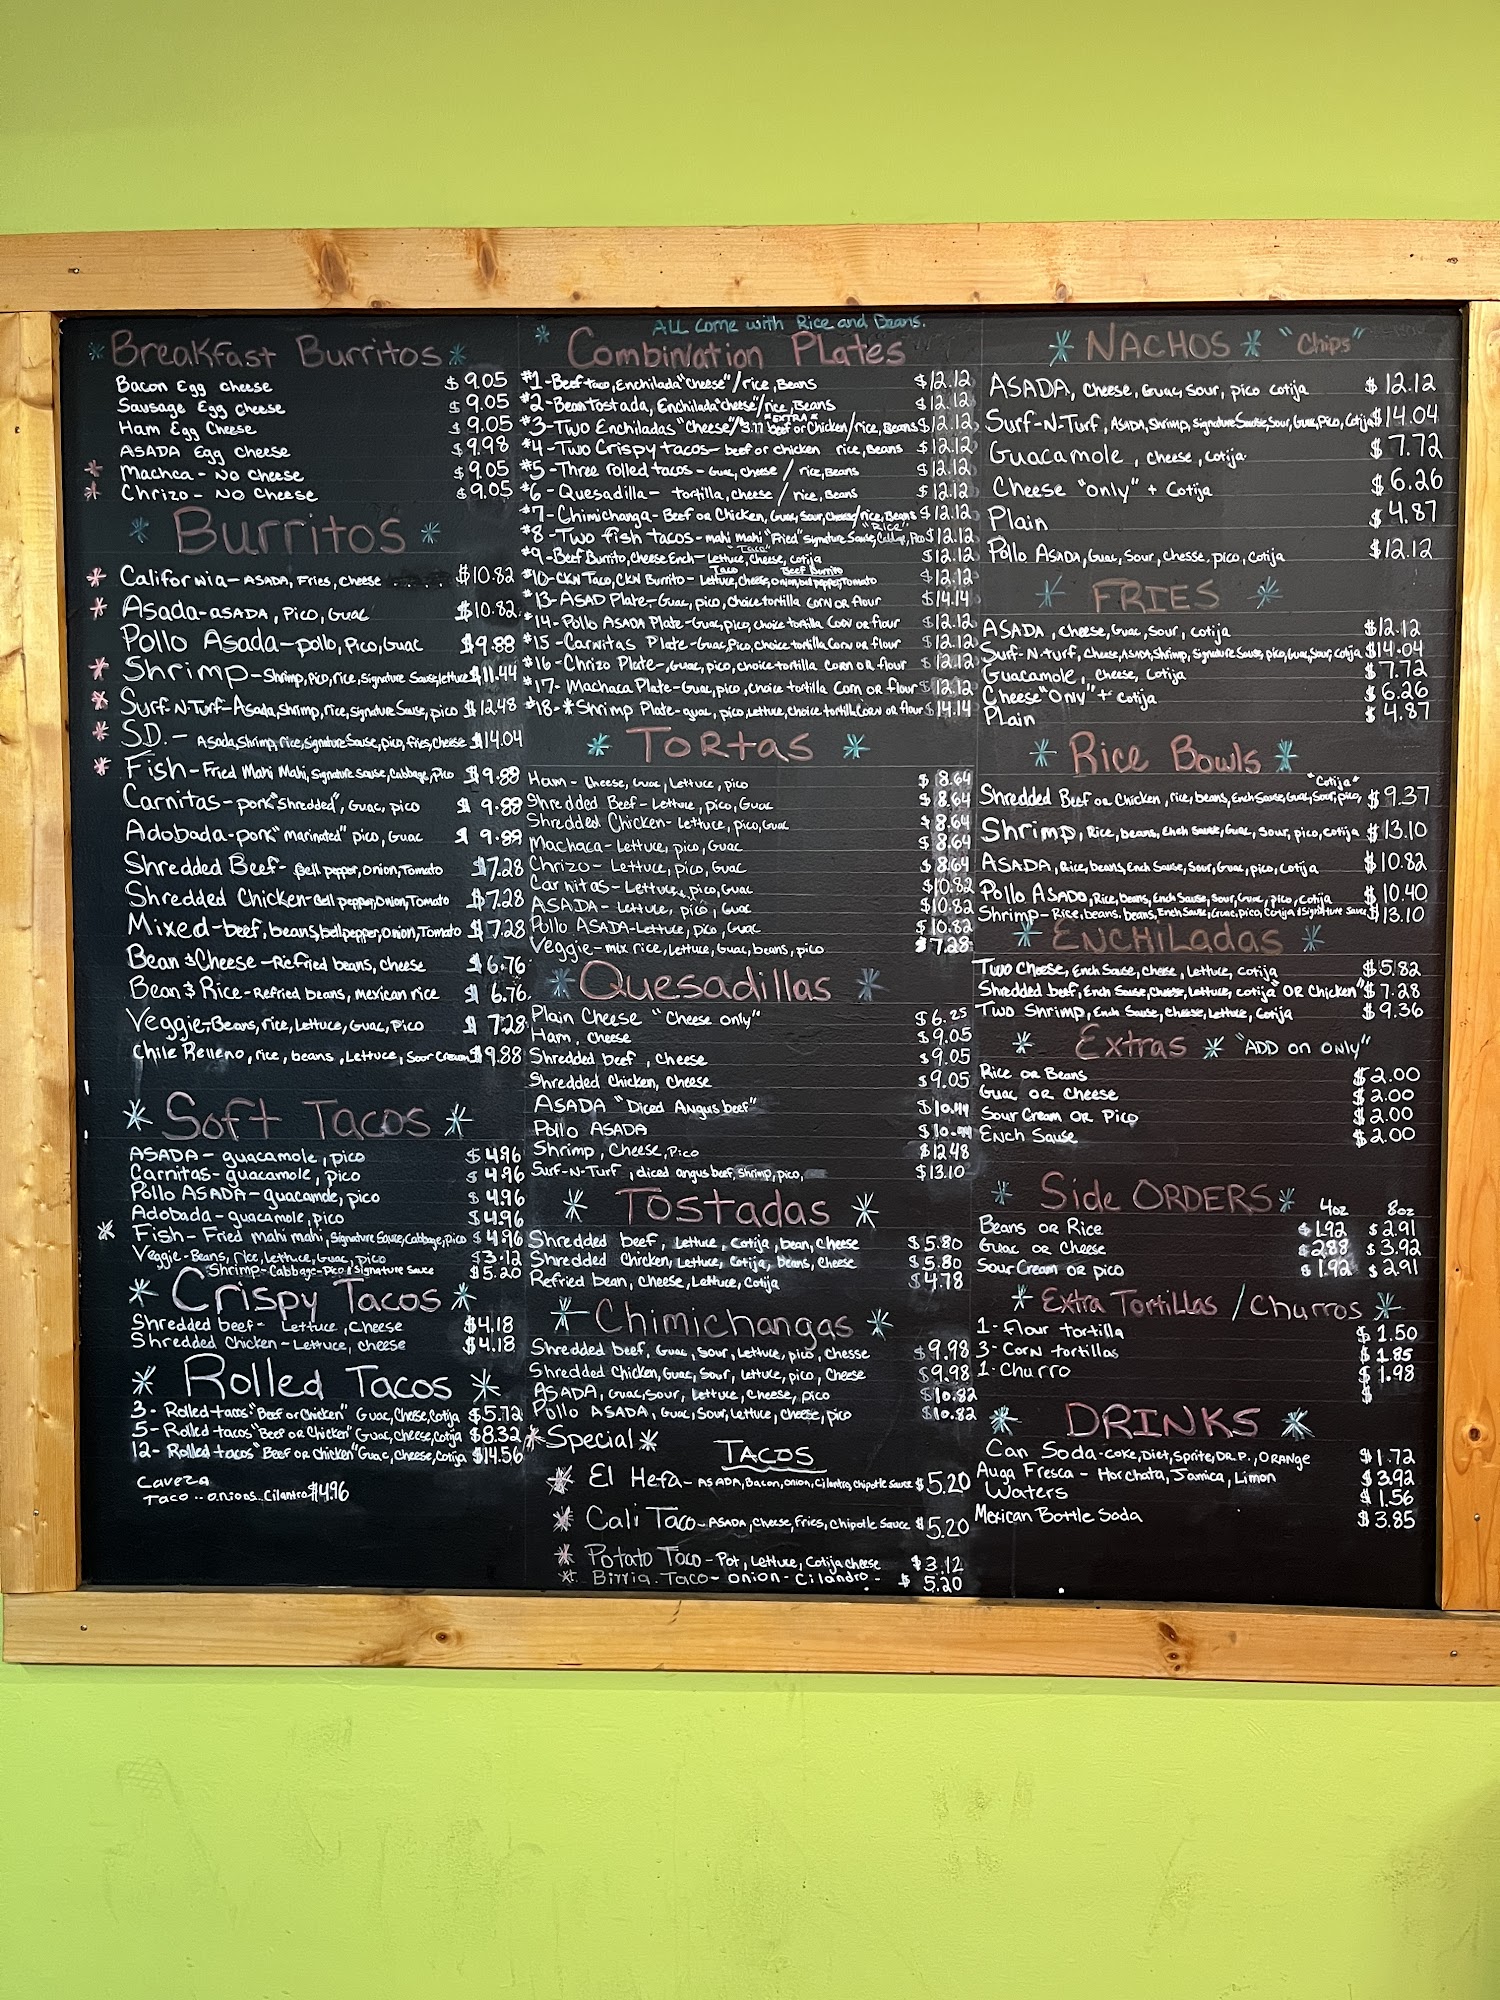 * Breakfast Burritos *
Bacon Egg cheese $ 9.05
Sausage Egg cheese $ 9.05
Ham Egg Cheese $ 9.05
ASADA Egg cheese $ 9.98
* Machca - No cheese $ 9.05
* Chrizo - No cheese $ 9.05
* Burritos *
* California - ASADA, Fries, cheese $10.82
* Asada - ASADA, Pico, Guac $10.82
Pollo Asada - pollo, Pico, Guac $9.88
* Shrimp - Shrimp, Pico, rice, Signature Sause, lettuce $11.44
* Surf N-Turf - Asada, Shrimp, rice, Signature Sause, pico $12.48
* S.D. - Asada, Shrimp, rice, Signature Sause, pico, fries, cheese $14.04
* Fish - Fried Mahi Mahi, Signature sause, Cabbage, Pico $9.88
Carnitas - pork "Shredded", Guac, pico $ 9.88
Adobada - pork "marinated" pico, Guac $ 9.88
Shredded Beef - Bell pepper, Onion, Tomato $7.28
Shredded Chicken - Bell pepper, Onion, Tomato $7.28
Mixed - beef, beans, bell pepper, Onion, Tomato $7.28
Bean & Cheese - Refried beans, cheese $6.76
Bean & Rice - Refried beans, mexican rice $ 6.76
Veggie - Beans, rice, Lettuce, Guac, Pico $ 7.28
Chile Relleno, rice, beans, Lettuce, Sour Cream $9.88
* Soft Tacos *
ASADA - guacamole, pico $ 4.96
Carnitas - guacamole, pico $ 4.96
Pollo ASADA - guacamole, pico $ 4.96
Adobada - guacamole, pico $4.96
* Fish - Fried mahi mahi, Signature Sause, Cabbage, pico $ 4.96
Veggie - Beans, rice, Lettuce, Guac, pico $3.12
Shrimp - Cabbage - Pico & Signature Sauce $5.20
* Crispy Tacos *
Shredded beef - Lettuce, Cheese $4.18
Shredded Chicken - Lettuce, cheese $4.18
* Rolled Tacos *
3 - Rolled tacos "Beef or Chicken" Guac, Cheese, Cotija $5.72
5 - Rolled tacos "Beef or Chicken" Guac, cheese, Cotija $8.32
12 - Rolled tacos "Beef or Chicken" Guac, Cheese, Cotija $14.56
Caveza
Taco .. onions.. Cilantro $4.96
ALL Come with Rice and Beans.
* Combination Plates
#1 - Beef taco, Enchilada "Cheese" / rice, Beans $12.12
#2 - Bean tostada, Enchilada "cheese" / rice, Beans $12.12
"EXTRA"
#3 - Two Enchiladas "Cheese" / 3.77 beef or Chicken / rice, Beans $12.12
#4 - Two Crispy tacos - beef or chicken rice, Beans $12.12
#5 - Three rolled tacos - Guac, Cheese / rice, Beans $12.12
#6 - Quesadilla - tortilla, cheese / rice, Beans $12.12
#7 - Chimichanga - Beef or Chicken, Guac, Sour, Cheese / rice, Beans $12.12
"Rice"
#8 - Two fish tacos - mahi mahi "Fried" signature Sause, Cabbage, Pico $12.12
"Taco"
#9 - Beef Burrito, Cheese Ench - Lettuce, Cheese, cotija $12.12
Taco Beef Burrito
#10 - CKN Taco, CKN Burrito - Lettuce, Cheese, Onion, bell pepper, Tomato $12.12
#13 - ASAD Plate - Guac, pico, choice tortilla corn or flour $14.14
#14 - Pollo ASADA Plate - Guac, pico, choice tortilla Corn or flour $12.12
#15 - Carnitas Plate - Guac, Pico, choice tortilla Corn or flour $12.12
#16 - Chrizo Plate -, guac, pico, choice tortilla corn or flour $12.12
#17 - Machaca Plate - Guac, pico, choice tortilla Corn or flour $12.12
#18 - * Shrimp Plate - guac, pico, Lettuce, choice tortilla Corn or flour $14.14
* Tortas *
Ham - Cheese, Guac, Lettuce, pico $ 8.64
Shredded Beef - Lettuce, pico, Guac $ 8.64
Shredded Chicken - Lettuce, pico, Guac $8.64
Machaca - Lettuce, pico, Guac $ 8.64
Chrizo - Lettuce, pico, Guac $ 8.64
Carnitas - Lettuce, pico, Guac $10.82
ASADA - Lettuce, pico, Guac $10.82
Pollo ASADA - Lettuce, pico, Guac $10.82
Veggie - mix rice, Lettuce, Guac, beans, pico $7.28
* Quesadillas *
Plain Cheese "Cheese only" $6.25
Ham, Cheese $9.05
Shredded beef, Cheese $9.05
Shredded Chicken, Cheese $9.05
ASADA "Diced Angus beef" $10.44
Pollo ASADA
Shrimp, Cheese, Pico $12.48
Surf-N-Turf, diced angus beef, Shrimp, pico, $13.10
* Tostadas *
Shredded beef, Lettuce, Cotija, bean, Cheese $5.80
Shredded Chicken, Lettuce, Cotija, beans, Cheese $5.80
Refried bean, cheese, Lettuce, Cotija $4.78
* Chimichangas *
Shredded beef, Guac, Sour, Lettuce, pico, Chesse $9.98
Shredded Chicken, Guac, Sour, Lettuce, pico, Cheese $9.98
ASADA, Guac, Sour, Lettuce, Cheese, pico $10.82
Pollo ASADA, Guac, Sour, Lettuce, Cheese, pico $10.82
* Special *
TACOS
* El Hefa - ASADA, Bacon, onion, Cilantro, Chipotle Sauce $5.20
* Cali Taco - ASADA, Cheese, Fries, Chipotle Sauce $5.20
* Potato Taco - Pot, Lettuce, Cotija cheese $3.12
* Birria Taco - onion - Cilandro - $ 5.20
* NACHOS * "Chips"
ASADA, Cheese, Guac, Sour, pico cotija $12.12
Surf-N-Turf, ASADA, Shrimp, Signature Sause, Sour, Guac, Pico, Cotija $14.04
Guacamole, cheese, cotija $7.72
Cheese "only" + Cotija $6.26
Plain $4.87
Pollo ASADA, Guac, Sour, Chesse, pico, cotija $12.12
* FRIES *
ASADA, cheese, Guac, Sour, cotija $12.12
Surf-N-turf, Cheese, ASADA, Shrimp, Signature Sause, pico, Guac, Sour, Cotija $14.04
Guacamole, Cheese, Cotija $7.72
Cheese "Only" + Cotija $6.26
Plain $4.87
* Rice Bowls *
"Cotija"
Shredded Beef or Chicken, rice, beans, Ench Sause, Guac, Sour, pico, $9.37
Shrimp, Rice, beans, Ench Sause, Guac, Sour, pico, Cotija $13.10
ASADA, Rice, beans, Ench Sause, Sour, Guac, pico, Cotija $10.82
Pollo ASADO, Rice, Beans, Ench Sause, Sour, Guac, pico, Cotija $10.40
Shrimp - Rice, beans, beans, Ench Sause, Guac, Pico, Cotija & Signature Sauce $13.10
* ENCHiLadas *
Two Cheese, Ench Sause, Cheese, Lettuce, Cotija $5.82
Shredded beef, Ench Sause, Cheese, Lettuce, cotija "OR Chicken" $7.28
Two Shrimp, Ench Sause, Cheese, Lettuce, Cotija $9.36
* Extras * "ADD on only"
Rice or Beans $2.00
Guac or Cheese $2.00
Sour Cream or Pico $2.00
Ench Sause $2.00
* Side ORDERS *
4oz 8oz
Beans or Rice $1.92 $2.91
Guac or Cheese $2.88 $3.92
Sour Cream or pico $1.92 $2.91
* Extra Tortillas / Churros *
1 - flour tortilla $ 1.50
3 - Corn tortillas $ 1.85
1 - Churro $ 1.98
$
* DRINKS *
Can Soda - Coke, Diet, Sprite, DR.P., ORANGE $1.72
Auga Fresca - Horchata, Jamica, Limon $3.92
Waters $1.56
Mexican Bottle Soda $3.85